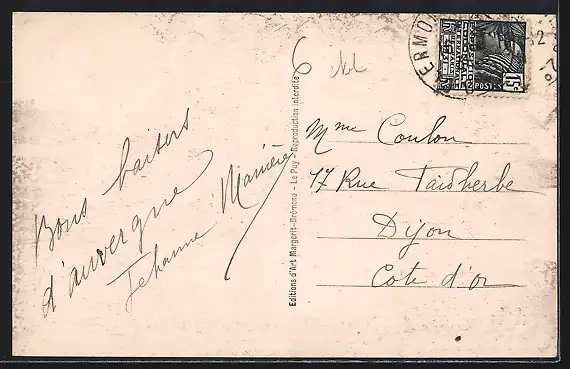 Bons baisers
d'auvergne
Jehanne Manière
6
Editions d'Art Margerit-Brémond - Le Puy - Reproduction interdite
ERMO
15c
POSTES
Mme Coulon
17 Rue Faidherbe
Dijon
Cote d'or